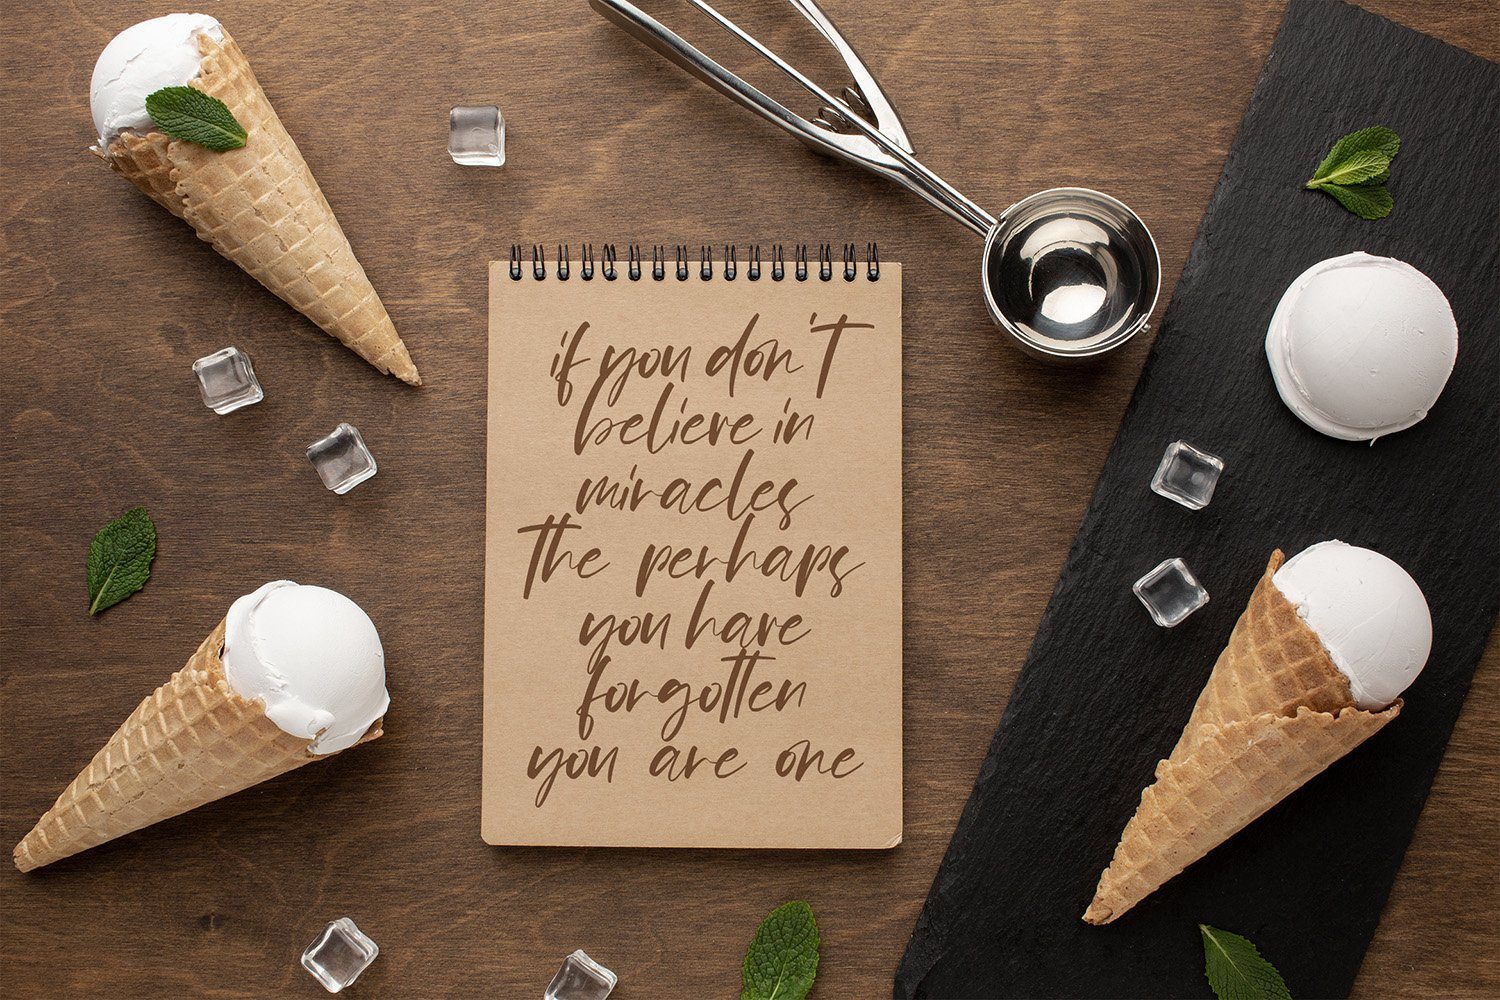 if you don'T
believe in
miracles
The perhaps
you have
forgotten
you are one